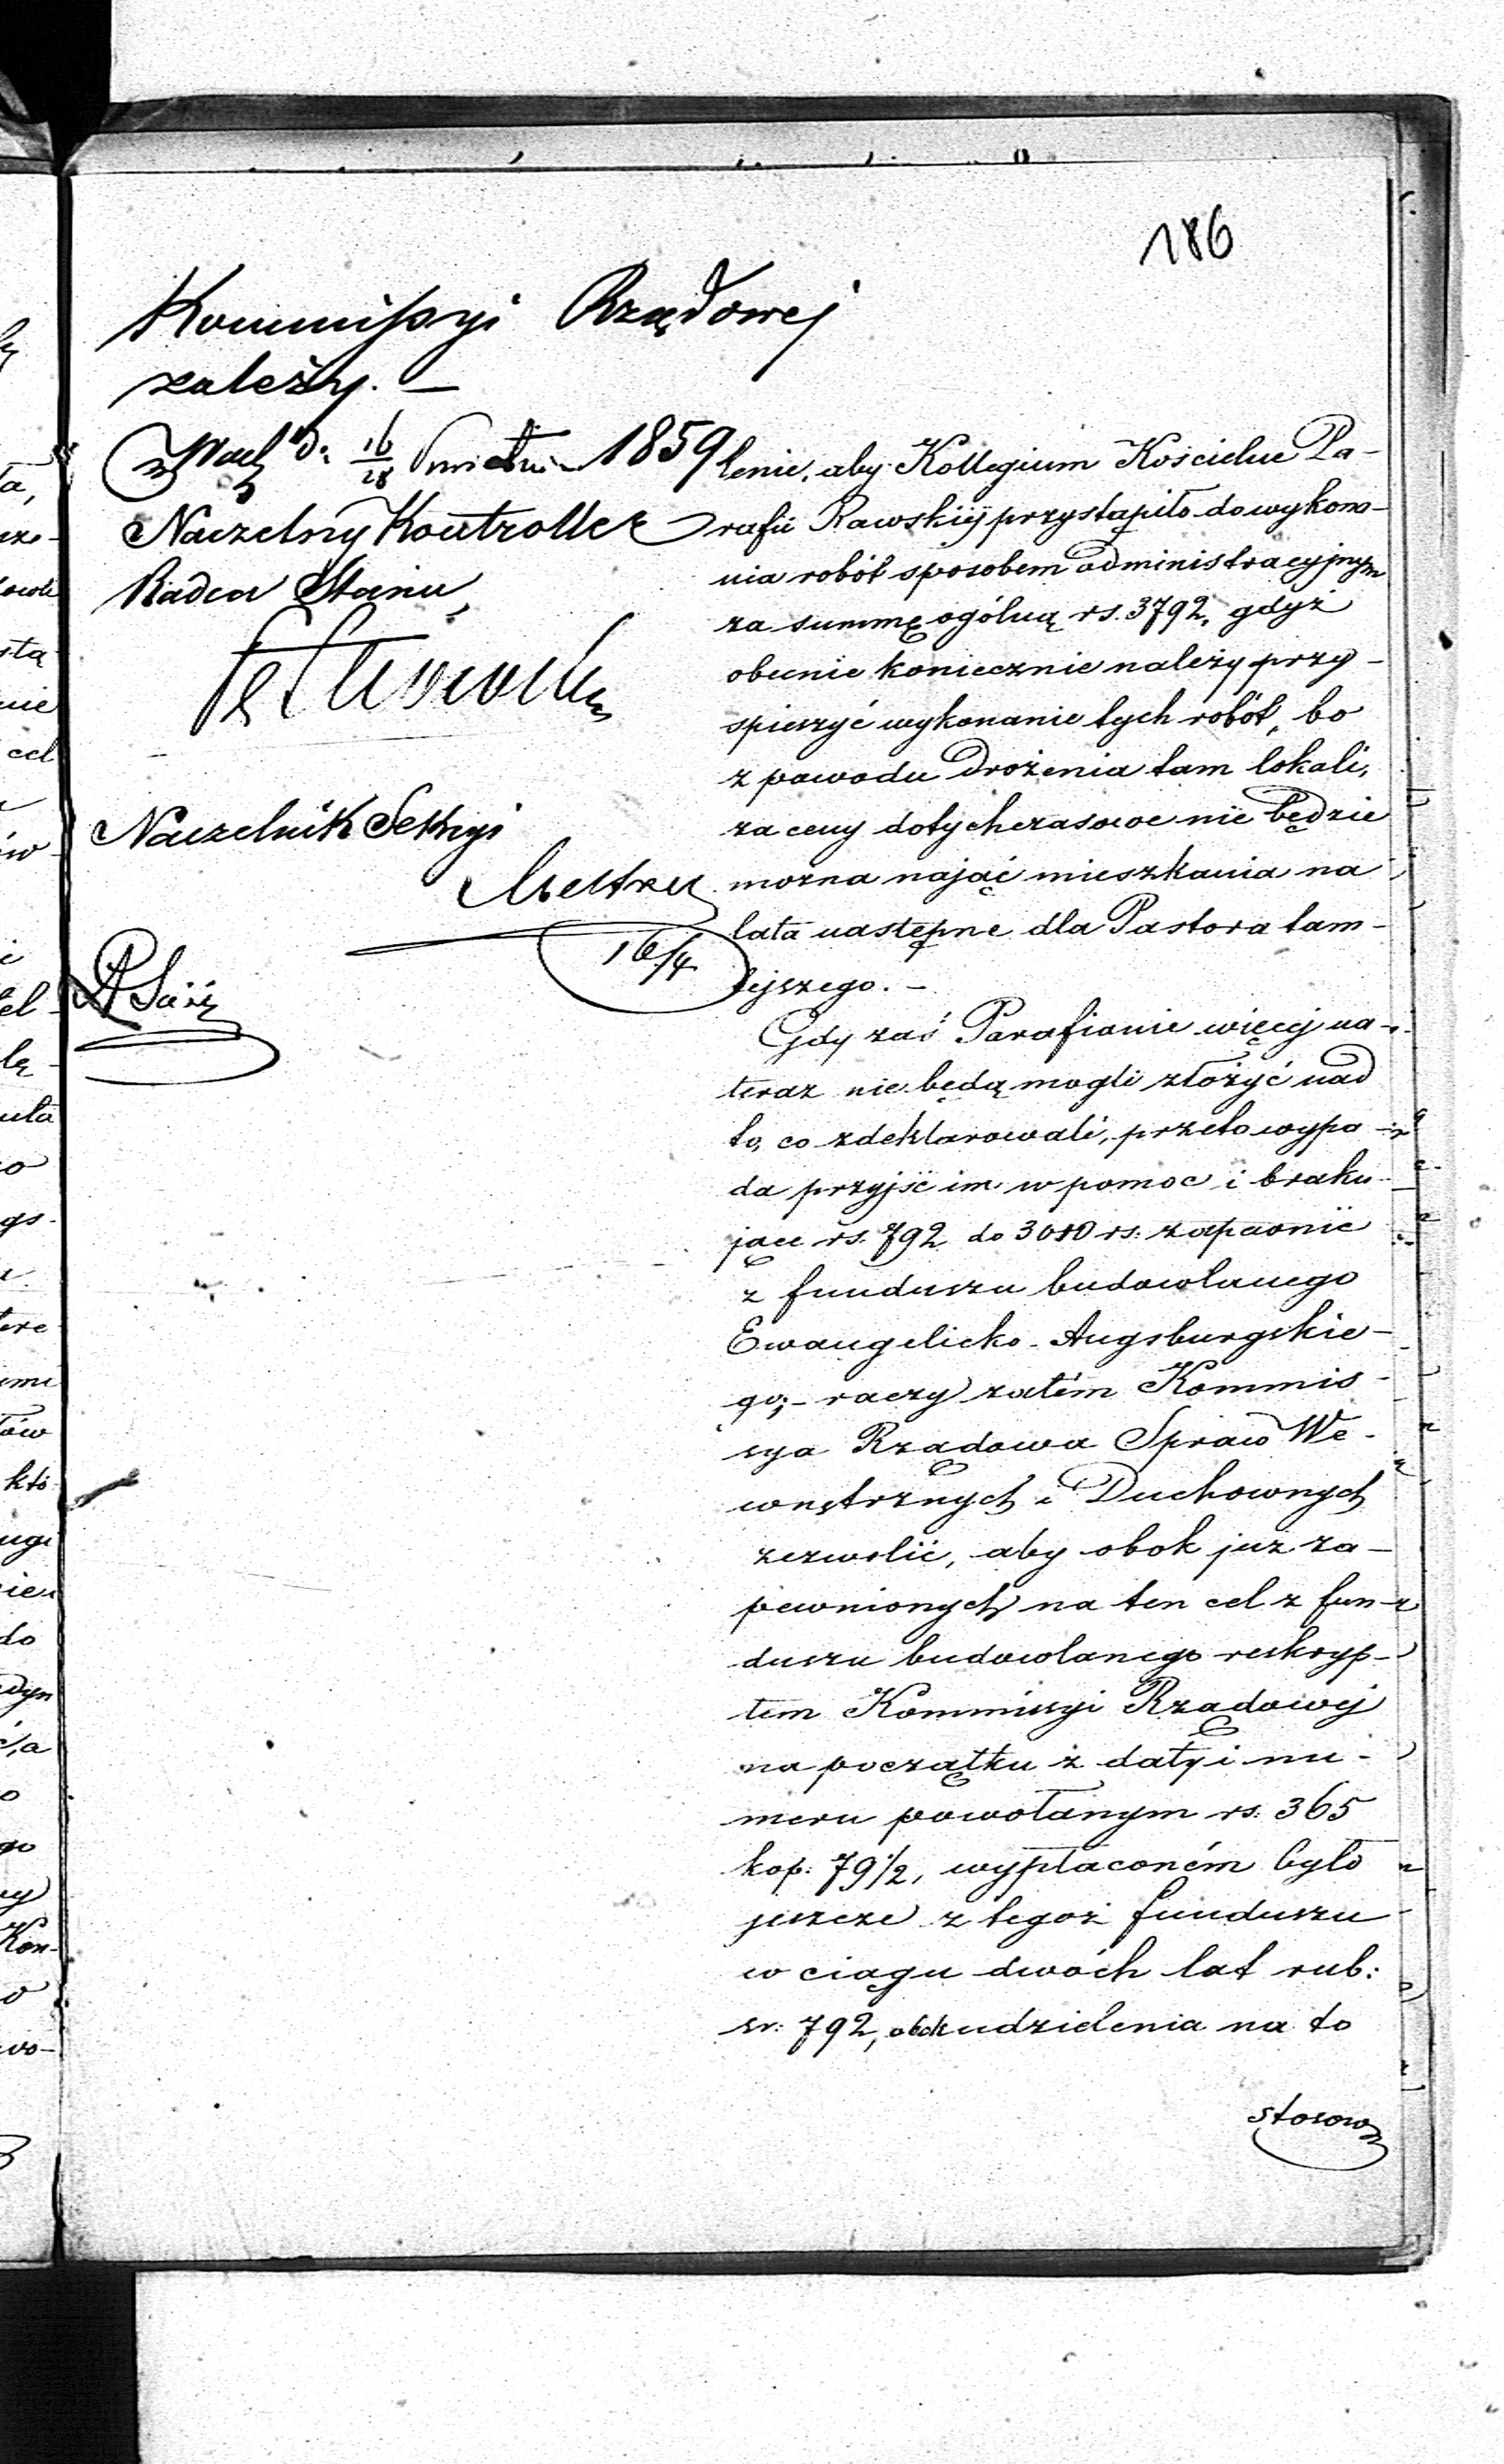 186
Kommissyi Rządowej
zależy. —
d: 16/28 Kwietnia 1859
Naczelny Kontroller
Radca Stanu,
Naczelnik Sekcyi
16/4
lenie, aby Kollegium Kościelne Pa-
rafii Rawskiéj przystąpiło do wykona-
nia robót sposobem administracyjnym
za summę ogólną rs. 3792, gdyż
obecnie koniecznie należy przy-
spieszyć wykonanie tych robót, bo
z powodu drożenia tam lokali,
za ceny dotychczasowe nie będzie
można nająć mieszkania na
lata następne dla Pastora tam-
tejszego. —
Gdy zaś Parafianie więcej na-
teraz nie będą mogli złożyć nad
to, co zdeklarowali, przeto wypa-
da przyjść im w pomoc i braku-
jące rs. 792 do 3000 rs: zapewnić
z funduszu budowlanego
Ewangelicko-Augsburgskie-
go; – raczy zatém Kommis-
sya Rządowa Spraw We-
wnętrznych i Duchownych
zezwolić, aby obok już za-
pewnionych na ten cel z fun-
duszu budowlanego reskryp-
tem Kommissyi Rządowej
na początku z daty i nu-
meru powołanym rs: 365
kop: 79 1/2, wypłaconém było
jeszcze z tegoż funduszu
w ciągu dwóch lat rub:
sr: 792, obok udzielenia na to
stosown